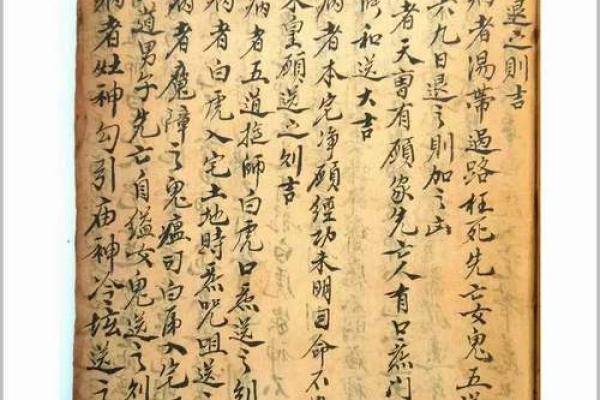 退之則吉
病者湯帶過路枉死先亡女鬼五道
不九日退之則加之凶
者天曹有願家先亡人有口愿门
和送大吉
病者本宅净願經功未明自命不
皇願送之则吉
病者五道拖師白虎口愿送之则
病者白虎入宅土地時愿咒咀送之
病者魔障之鬼瘟司白虎入宅
道男子先亡自鎰女鬼送之则
病者灶神勾引庙神冷坛送之